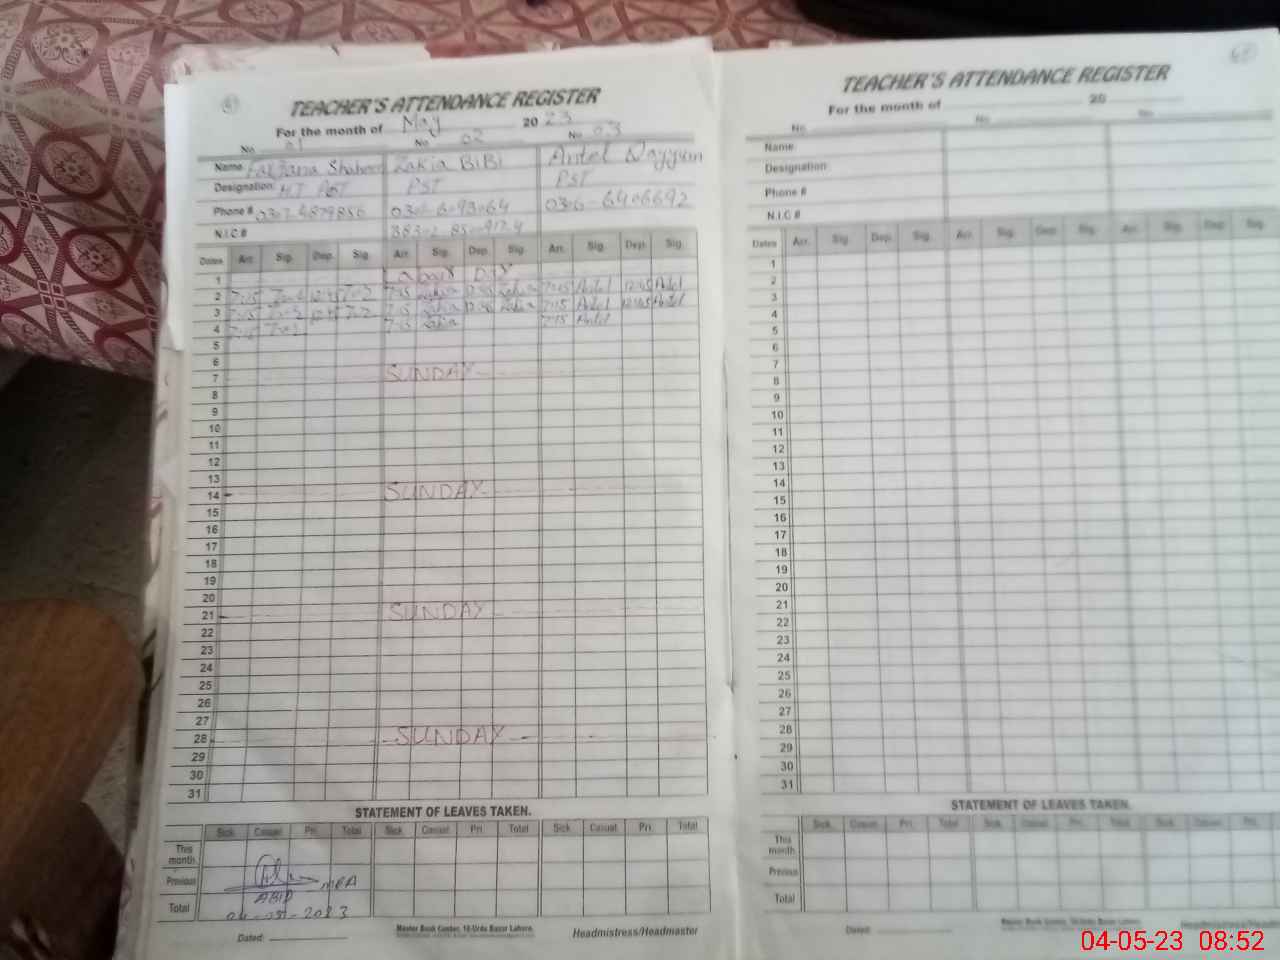 TEACHER'S ATTENDANCE REGISTER
For the month of May 2023
No. 01 No 02 No 03
Name Zakia BiBi
Designation: PST PST
Phone #
N.I.C #
Dates Arr. Sig. Dep. Sig. Arr. Sig. Dep. Sig. Arr. Sig. Dep. Sig.
1 Labour DAY
2 7:15 7:15 Zakia Zakia 7:15 12:45
3 7:15 7:15 Zakia Zakia 7:15 12:45
4 7:15 7:15 Zakia 7:15
5
6
7 SUNDAY
8
9
10
11
12
13
14 SUNDAY
15
16
17
18
19
20
21 SUNDAY
22
23
24
25
26
27
28 SUNDAY
29
30
31
STATEMENT OF LEAVES TAKEN.
Sick Casual Pri. Total Sick Casual Pri. Total Sick Casual Pri. Total
This month.
Previous MEA
ABID
Total 04-05-2023
Dated:
Master Book Center, 18-Urdu Bazar Lahore.
Headmistress/Headmaster
TEACHER'S ATTENDANCE REGISTER
For the month of 20
No. No. No.
Name:
Designation:
Phone #
N.I.C #
Dates Arr. Sig. Dep. Sig. Arr. Sig. Dep. Sig. Arr. Sig. Dep. Sig.
1
2
3
4
5
6
7
8
9
10
11
12
13
14
15
16
17
18
19
20
21
22
23
24
25
26
27
28
29
30
31
STATEMENT OF LEAVES TAKEN.
Sick Casual Pri. Total Sick Casual Pri. Total Sick Casual Pri.
This month.
Previous
Total
Dated:
Master Book Center, 18-Urdu Bazar Lahore.
04-05-23 08:52